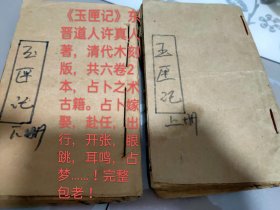 《玉匣记》东
晋道人许真人
著，清代木刻
版，共六卷2
本，占卜之术
古籍。占卜嫁
娶，赴任，出
行，开张，眼
跳，耳鸣，占
梦……！完整
包老！
玉匣记
下册
玉匣记
上册